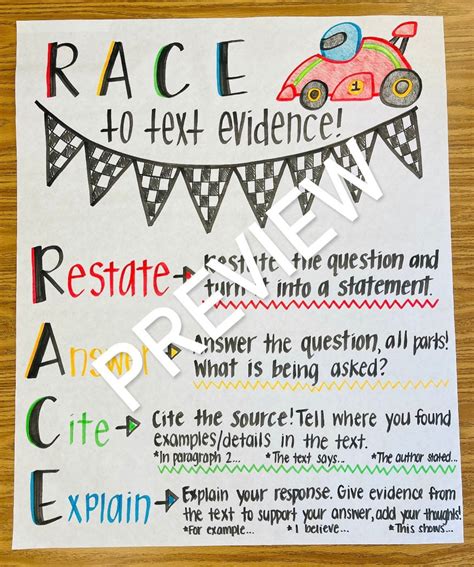 RACE
to text evidence!
1
Restate → Restate the question and
turn it into a statement.
Answer → Answer the question, all parts!
What is being asked?
Cite → Cite the Source! Tell where you found
examples/details in the text.
*In paragraph 2... *The text says... *The author stated...
Explain → Explain your response. Give evidence from
the text to support your answer, add your thoughts!
*For example... *I believe... *This shows...
PREVIEW